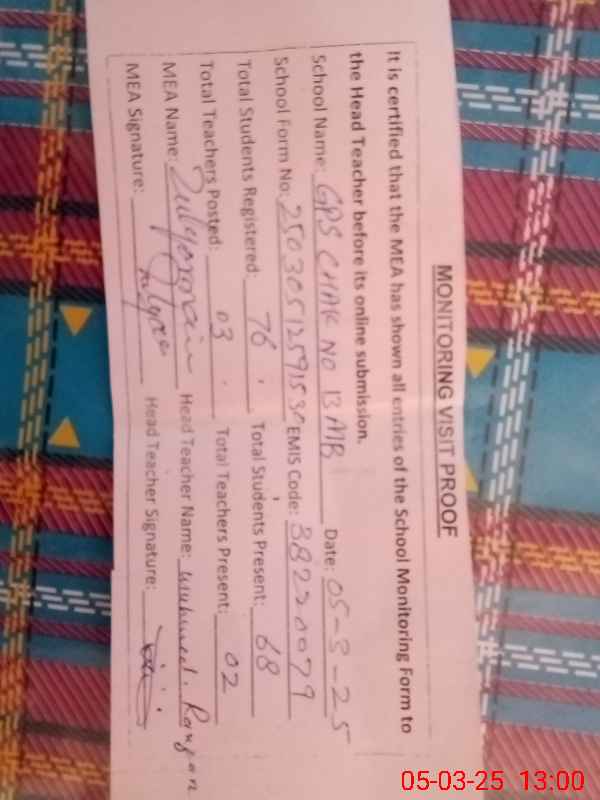 MONITORING VISIT PROOF
It is certified that the MEA has shown all entries of the School Monitoring Form to
the Head Teacher before its online submission.
School Name: GPS CHAK NO 13 MB Date: 05-3-25
School Form No: 250305125915 30 EMIS Code: 38220079
Total Students Registered: 76 Total Students Present: 68
Total Teachers Posted: 03 Total Teachers Present: 02
MEA Name: Head Teacher Name: Muhmed. Ramzan
MEA Signature: Head Teacher Signature:
05-03-25 13:00